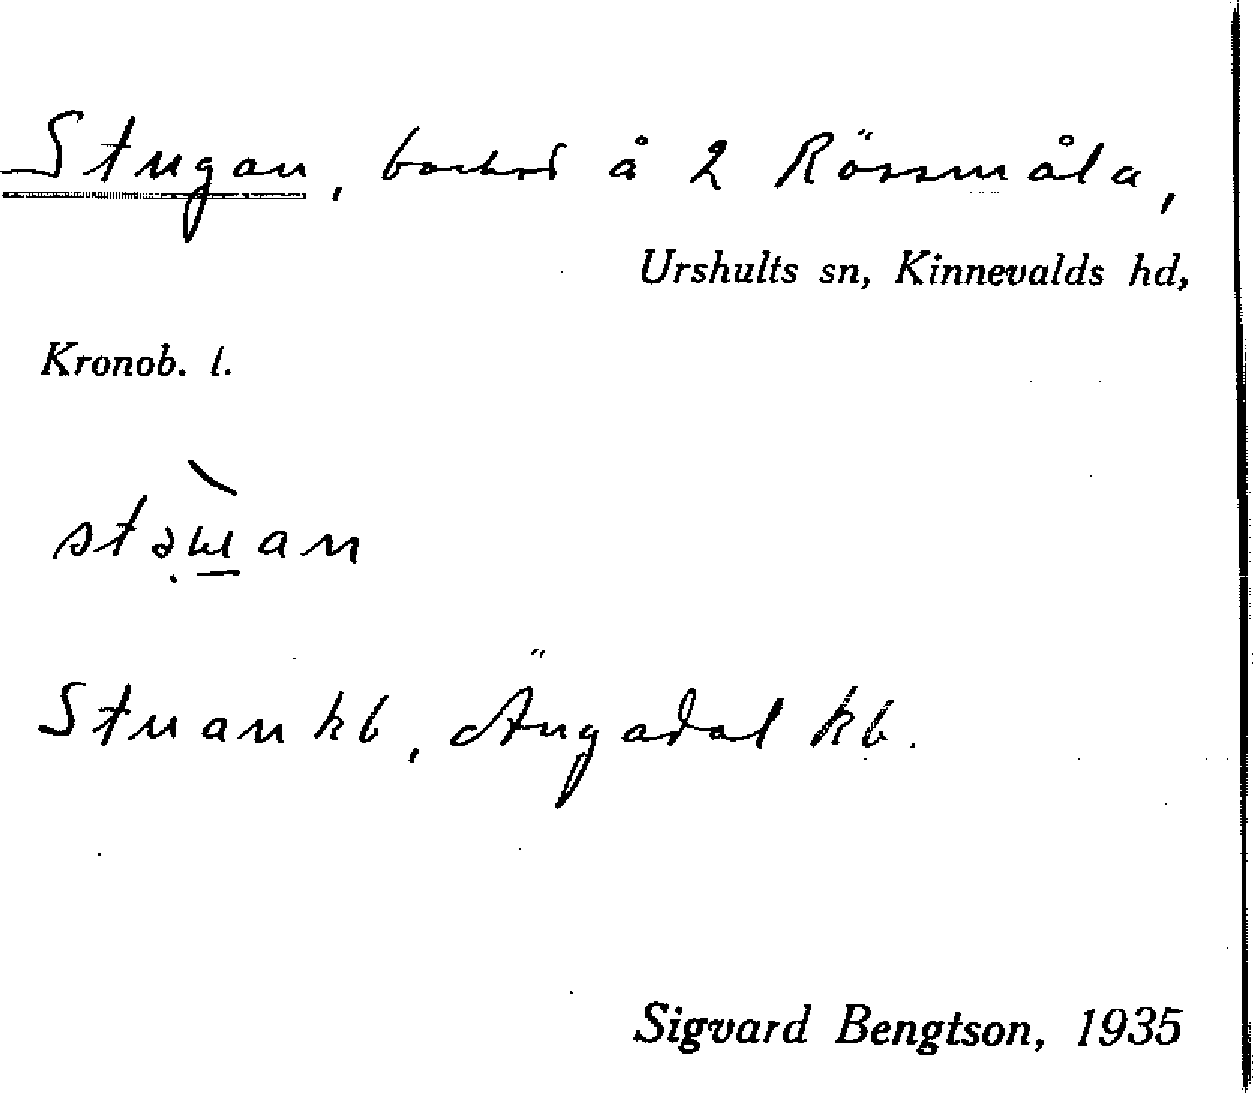 Stugan, backst å 2 Rössmåla,
Urshults sn, Kinnevalds hd,
Kronob. l.
Stuan kb, Ängadal kb.
Sigvard Bengtson, 1935